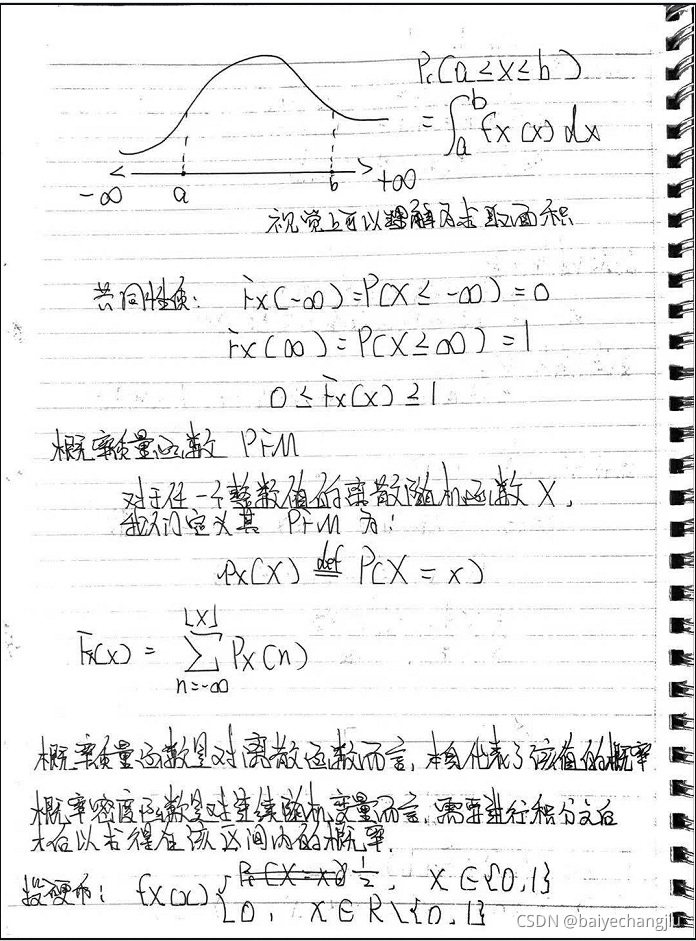 Pr(a≤X≤b)
= ∫_a^b fx(x) dx
-∞ a b +∞
视觉上可以理解为求取面积
共同性质: Fx(-∞)=P(X≤-∞)=0
Fx(∞)=P(X≤∞)=1
0≤Fx(x)≥1
概率质量函数 PFM
对于任一个整数值的离散随机函数 X,
我们定义其 PFM 为:
Px(X) def= P(X=x)
Fx(x) = ∑_{n=-∞}^{⌊X⌋} Px(n)
概率质量函数是对离散函数而言,本身代表了该值的概率
概率密度函数是对连续随机变量而言,需要进行积分之后
才可以求得在该区间内的概率.
投硬币: fx(x) { 1/2, X∈{0,1}
0, X∈R\{0,1}
CSDN @baiyechangjiu